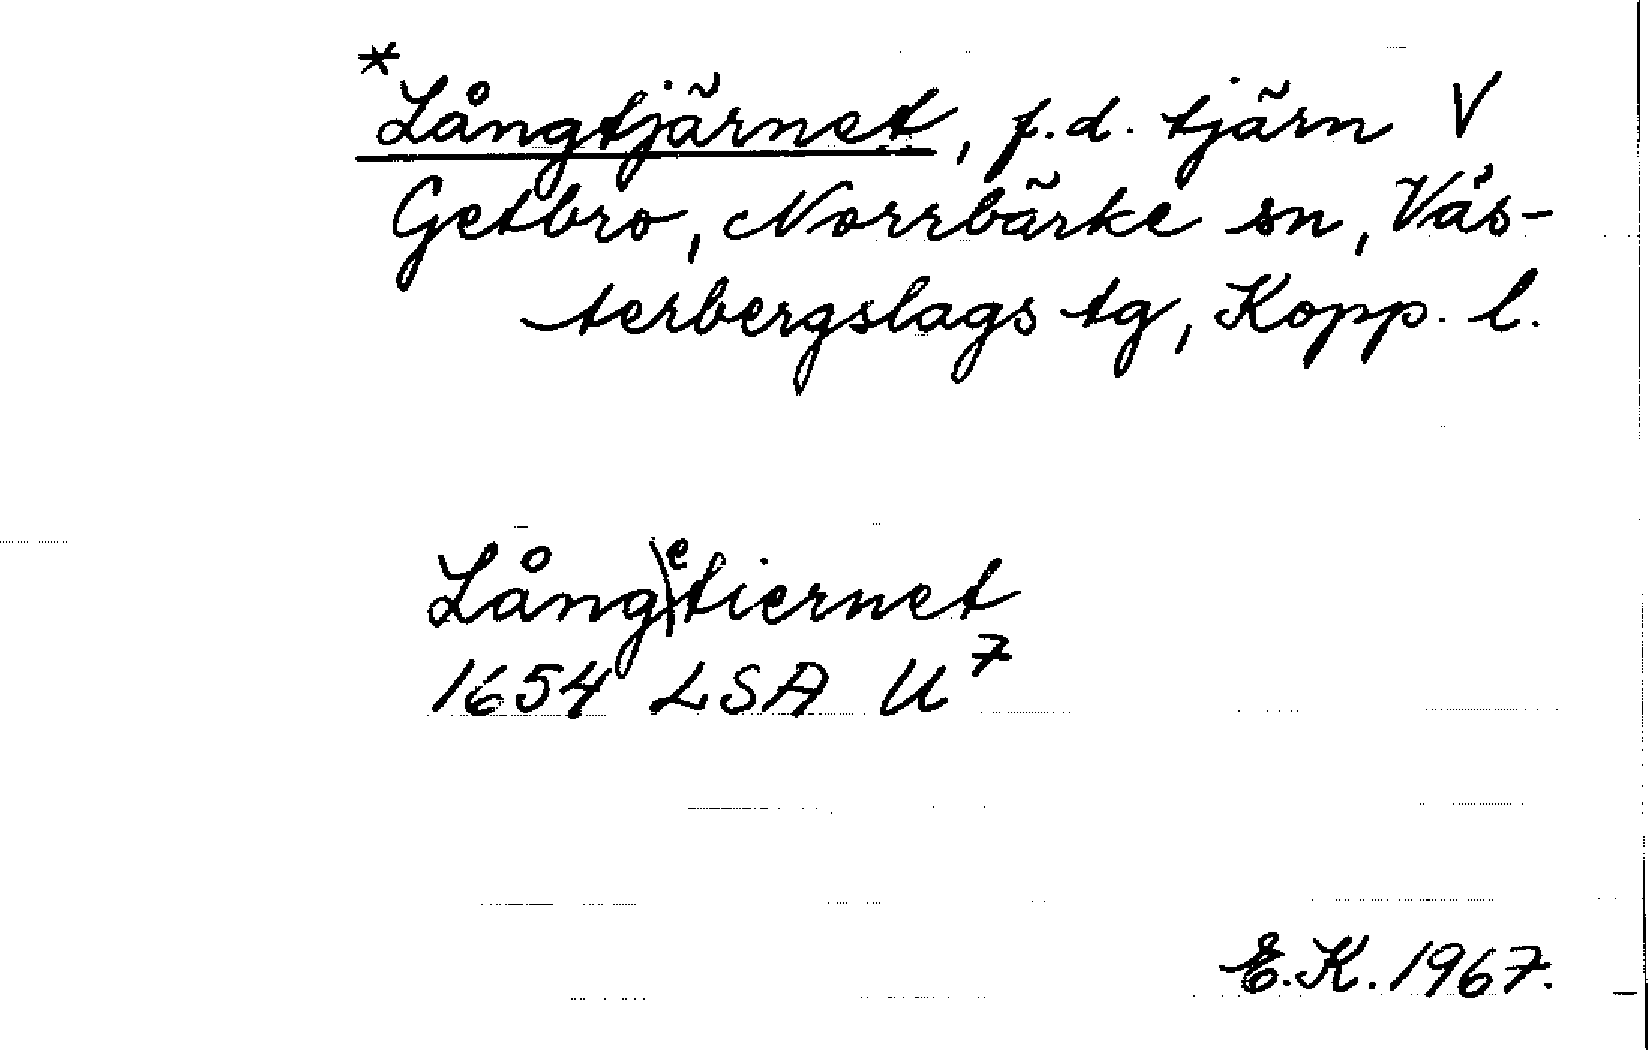 *Långtjärnet, f.d. tjärn V
Getbro, Norrbärke sn, Väs-
terbergslags tg, Kopp. l.
Långetiernet
1654 LSA U7
E.K. 1967.